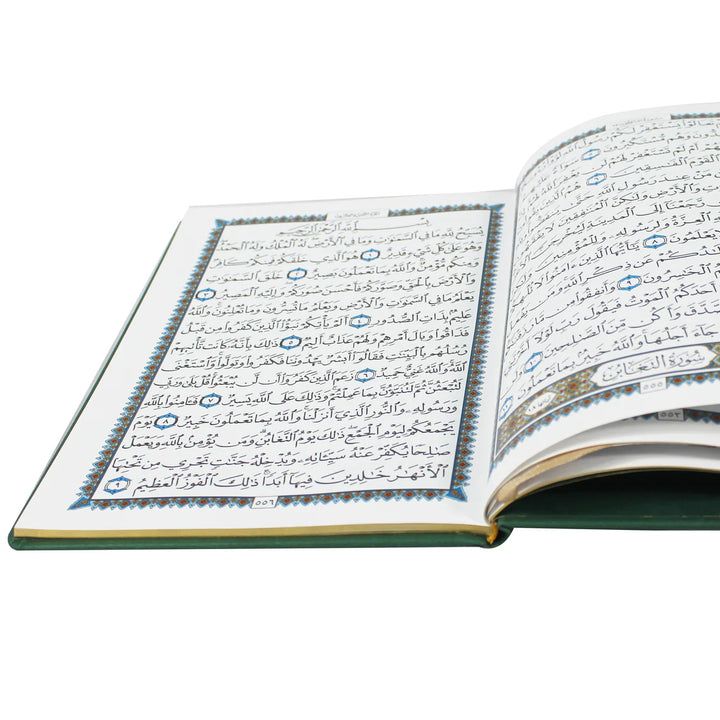 تَعَالَوْا۟ يَسْتَغْفِرْ لَكُمْ رَسُولُ ٱللَّهِ
وَهُم مُّسْتَكْبِرُونَ ٥ سَوَآءٌ
أَمْ لَمْ تَسْتَغْفِرْ لَهُمْ لَن
ٱلْقَوْمَ ٱلْفَٰسِقِينَ ٦ هُمُ ٱلَّذِينَ
مَنْ عِندَ رَسُولِ ٱللَّهِ
وَٱلْأَرْضِ وَلَٰكِنَّ ٱلْمُنَٰفِقِينَ
رَّجَعْنَآ إِلَى ٱلْمَدِينَةِ
ٱلْعِزَّةُ وَلِرَسُولِهِۦ
يَعْلَمُونَ ٨ يَٰٓأَيُّهَا ٱلَّذِينَ
عَن ذِكْرِ ٱللَّهِ
ٱلْخَٰسِرُونَ ٩ وَأَنفِقُوا۟ مِن
أَحَدَكُمُ ٱلْمَوْتُ فَيَقُولَ رَبِّ لَوْلَآ
وَأَكُن مِّنَ ٱلصَّٰلِحِينَ
جَآءَ أَجَلُهَا وَٱللَّهُ خَبِيرٌۢ بِمَا تَعْمَلُونَ
سُورَةُ التَّغَابُنِ
٥٥٥
٥٥٣
بِسْمِ ٱللَّهِ ٱلرَّحْمَٰنِ ٱلرَّحِيمِ
يُسَبِّحُ لِلَّهِ مَا فِى ٱلسَّمَٰوَٰتِ وَمَا فِى ٱلْأَرْضِ لَهُ ٱلْمُلْكُ وَلَهُ ٱلْحَمْدُ
وَهُوَ عَلَىٰ كُلِّ شَىْءٍ قَدِيرٌ ١ هُوَ ٱلَّذِى خَلَقَكُمْ فَمِنكُمْ كَافِرٌ
وَمِنكُم مُّؤْمِنٌ وَٱللَّهُ بِمَا تَعْمَلُونَ بَصِيرٌ ٢ خَلَقَ ٱلسَّمَٰوَٰتِ
وَٱلْأَرْضَ بِٱلْحَقِّ وَصَوَّرَكُمْ فَأَحْسَنَ صُوَرَكُمْ وَإِلَيْهِ ٱلْمَصِيرُ ٣
يَعْلَمُ مَا فِى ٱلسَّمَٰوَٰتِ وَٱلْأَرْضِ وَيَعْلَمُ مَا تُسِرُّونَ وَمَا تُعْلِنُونَ وَٱللَّهُ
عَلِيمٌۢ بِذَاتِ ٱلصُّدُورِ ٤ أَلَمْ يَأْتِكُمْ نَبَؤُا۟ ٱلَّذِينَ كَفَرُوا۟ مِن قَبْلُ
فَذَاقُوا۟ وَبَالَ أَمْرِهِمْ وَلَهُمْ عَذَابٌ أَلِيمٌ ٥ ذَٰلِكَ بِأَنَّهُۥ كَانَت تَّأْتِيهِمْ
رُسُلُهُم بِٱلْبَيِّنَٰتِ فَقَالُوٓا۟ أَبَشَرٌ يَهْدُونَنَا فَكَفَرُوا۟ وَتَوَلَّوا۟ وَّٱسْتَغْنَى
ٱللَّهُ وَٱللَّهُ غَنِىٌّ حَمِيدٌ ٦ زَعَمَ ٱلَّذِينَ كَفَرُوٓا۟ أَن لَّن يُبْعَثُوا۟ قُلْ بَلَىٰ وَرَبِّى
لَتُبْعَثُنَّ ثُمَّ لَتُنَبَّؤُنَّ بِمَا عَمِلْتُمْ وَذَٰلِكَ عَلَى ٱللَّهِ يَسِيرٌ ٧ فَـَٔامِنُوا۟ بِٱللَّهِ
وَرَسُولِهِۦ وَٱلنُّورِ ٱلَّذِىٓ أَنزَلْنَا وَٱللَّهُ بِمَا تَعْمَلُونَ خَبِيرٌ ٨ يَوْمَ
يَجْمَعُكُمْ لِيَوْمِ ٱلْجَمْعِ ذَٰلِكَ يَوْمُ ٱلتَّغَابُنِ وَمَن يُؤْمِنۢ بِٱللَّهِ وَيَعْمَلْ
صَٰلِحًا يُكَفِّرْ عَنْهُ سَيِّـَٔاتِهِۦ وَيُدْخِلْهُ جَنَّٰتٍ تَجْرِى مِن تَحْتِهَا
ٱلْأَنْهَٰرُ خَٰلِدِينَ فِيهَآ أَبَدًا ذَٰلِكَ ٱلْفَوْزُ ٱلْعَظِيمُ ٩
٥٥٦